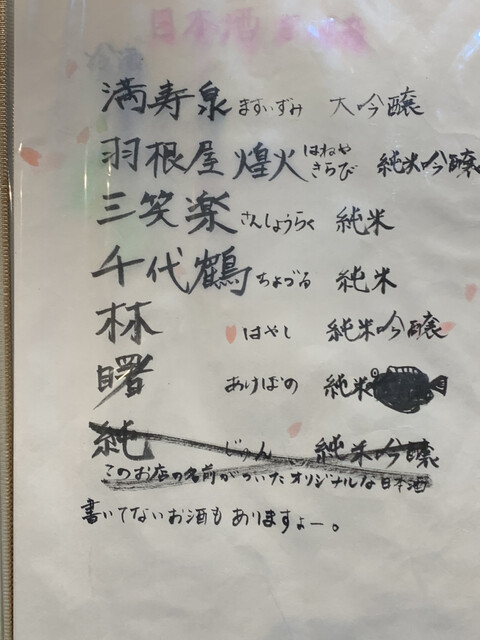 満寿泉 ますいずみ 大吟醸
羽根屋 煌火 はねや きらび 純米吟醸
三笑楽 さんしょうらく 純米
千代鶴 ちよづる 純米
林 はやし 純米吟醸
曙 あけぼの 純米
純 じゅん 純米吟醸
このお店の名前がついたオリジナルな日本酒
書いてないお酒もありますよー。